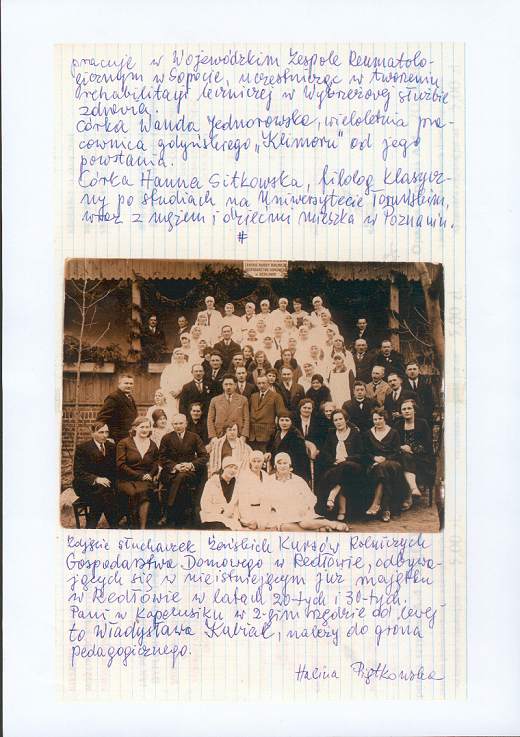 pracuje w Wojewódzkim Zespole Reumatolo-
gicznym w Sopocie, uczestnicząc w tworzeniu
rehabilitacji leczniczej w Wybrzeżowej służbie
zdrowia.
Córka Wanda Jednorowska, wieloletnia pra-
cownica gdyńskiego „Klimoru" od jego
powstania.
Córka Hanna Sitkowska, filolog klasycz-
ny po studiach na Uniwersytecie Toruńskim,
wraz z mężem i dziećmi mieszka w Poznaniu.
#
Zdjęcie słuchaczek Żeńskich Kursów Rolniczych
Gospodarstwa Domowego w Redłowie, odbywa-
jących się w nieistniejącym już majątku
w Redłowie w latach 20-tych i 30-tych.
Pani w kapelusiku w 2-gim rzędzie od lewej
to Władysława Kubiak, należy do grona
pedagogicznego.
Halina Piątkowska